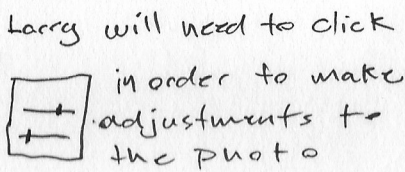 Larry will need to click
in order to make
adjustments to
the photo